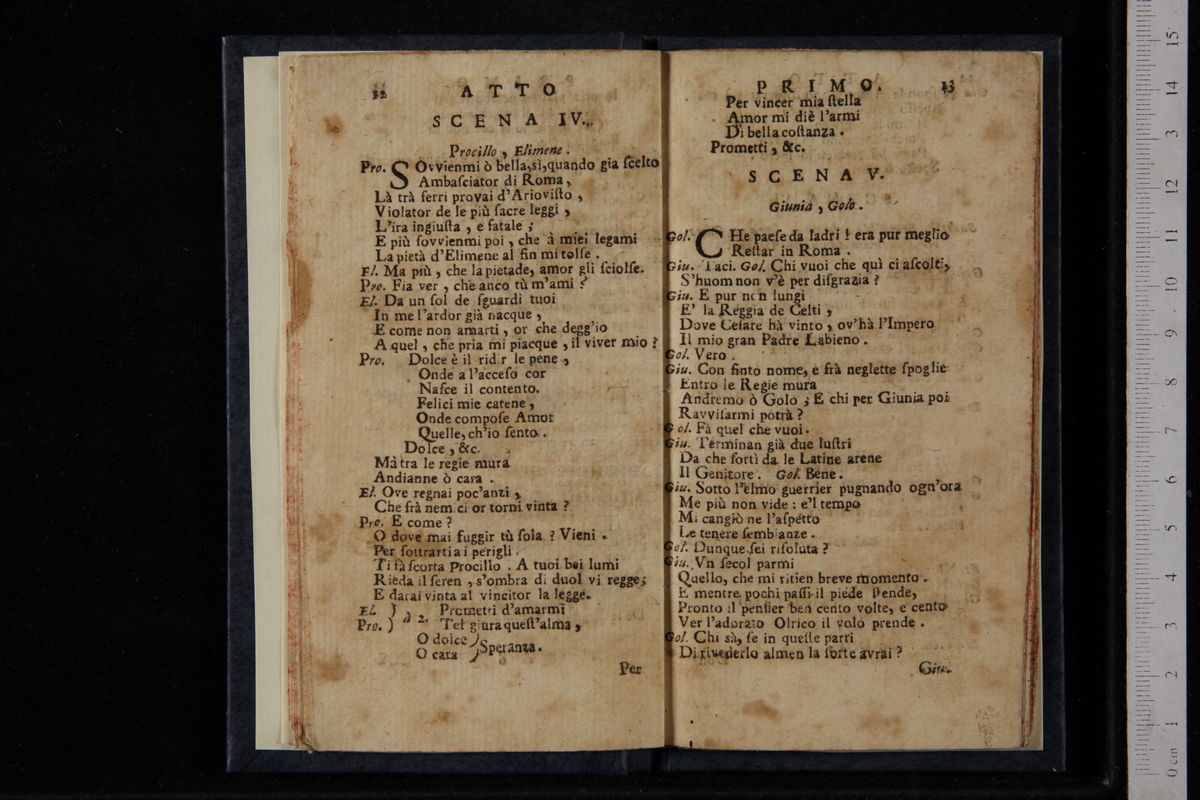 12 ATTO
SCENA IV.
Procillo, Elimene.
Pro. SOvvienmi ò bella, sì, quando gia ſcelto
Ambaſciator di Roma,
Là trà ferri provai d'Arioviſto,
Violator de le più ſacre leggi,
L'ira ingiuſta, e fatale;
E più ſovvienmi poi, che à miei legami
La pietà d'Elimene al fin mi tolſe.
El. Ma più, che la pietade, amor gli ſciolſe.
Pro. Fia ver, che anco tù m'ami?
El. Da un ſol de ſguardi tuoi
In me l'ardor già nacque,
E come non amarti, or che degg'io
A quel, che pria mi piacque, il viver mio?
Pro. Dolce è il rid r le pene,
Onde a l'acceſo cor
Naſce il contento.
Felici mie catene,
Onde compoſe Amor
Quelle, ch'io ſento.
Dolce, &c.
Mà tra le regie mura
Andianne ò cara.
El. Ove regnai poc'anzi,
Che frà nem ci or torni vinta?
Pro. E come?
O dove mai fuggir tù ſola? Vieni.
Per ſottrarti a i perigli.
Ti fà ſcorta Procillo. A tuoi bei lumi
Rieda il ſeren, s'ombra di duol vi regge;
E darai vinta al vincitor la legge.
El. ) à 2. Prometti d'amarmi
Pro. ) Tel giura queſt'alma,
O dolce ) Speranza.
O cara )
Per
PRIMO. 13
Per vincer mia ſtella
Amor mi diè l'armi
Di bella coſtanza.
Prometti, &c.
SCENA V.
Giunia, Golo.
Gol. CHe paeſe da ladri! era pur meglio
Reſtar in Roma.
Giu. Taci. Gol. Chi vuoi che quì ci aſcolti,
S'huom non v'è per diſgrazia?
Giu. E pur non lungi
E' la Reggia de Celti,
Dove Ceſare hà vinto, ov'hà l'Impero
Il mio gran Padre Labieno.
Gol. Vero.
Giu. Con finto nome, e frà neglette ſpoglie
Entro le Regie mura
Andremo ò Golo; E chi per Giunia poi
Ravviſarmi potrà?
Gol. Fà quel che vuoi.
Giu. Terminan già due luſtri
Da che ſortì da le Latine arene
Il Genitore. Gol. Bene.
Giu. Sotto l'elmo guerrier pugnando ogn'ora
Me più non vide: e'l tempo
Mi cangiò ne l'aſpetto
Le tenere ſembianze.
Gol. Dunque ſei riſoluta?
Giu. Vn ſecol parmi
Quello, che mi ritien breve momento.
E mentre pochi paſſi il piede ſtende,
Pronto il penſier ben cento volte, e cento
Ver l'adorato Olrico il volo prende.
Gol. Chi sà, ſe in queſte parti
Di rivederlo almen la ſorte avrai?
Giu.